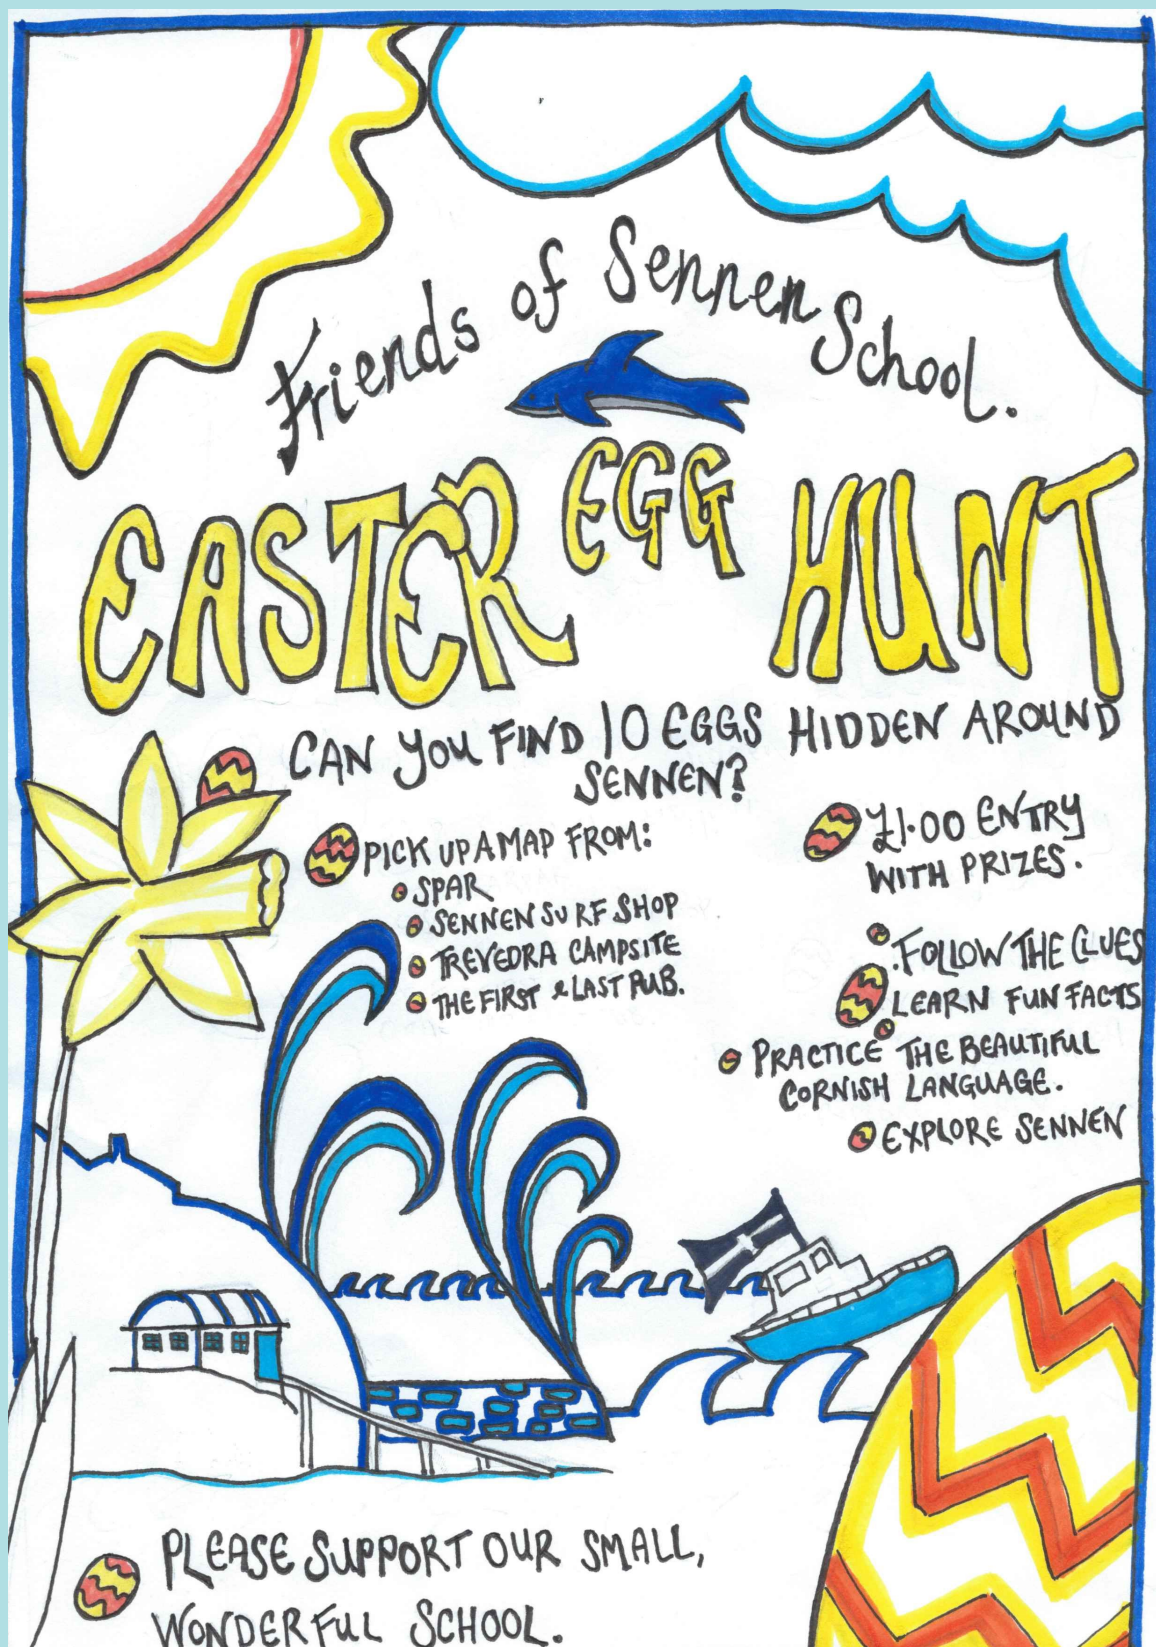 Friends of Sennen School.
EASTER EGG HUNT
CAN YOU FIND 10 EGGS HIDDEN AROUND
SENNEN?
PICK UP A MAP FROM:
SPAR
SENNEN SURF SHOP
TREVEDRA CAMPSITE
THE FIRST & LAST PUB.
£1.00 ENTRY
WITH PRIZES.
FOLLOW THE CLUES
LEARN FUN FACTS
PRACTICE THE BEAUTIFUL
CORNISH LANGUAGE.
EXPLORE SENNEN
PLEASE SUPPORT OUR SMALL,
WONDERFUL SCHOOL.